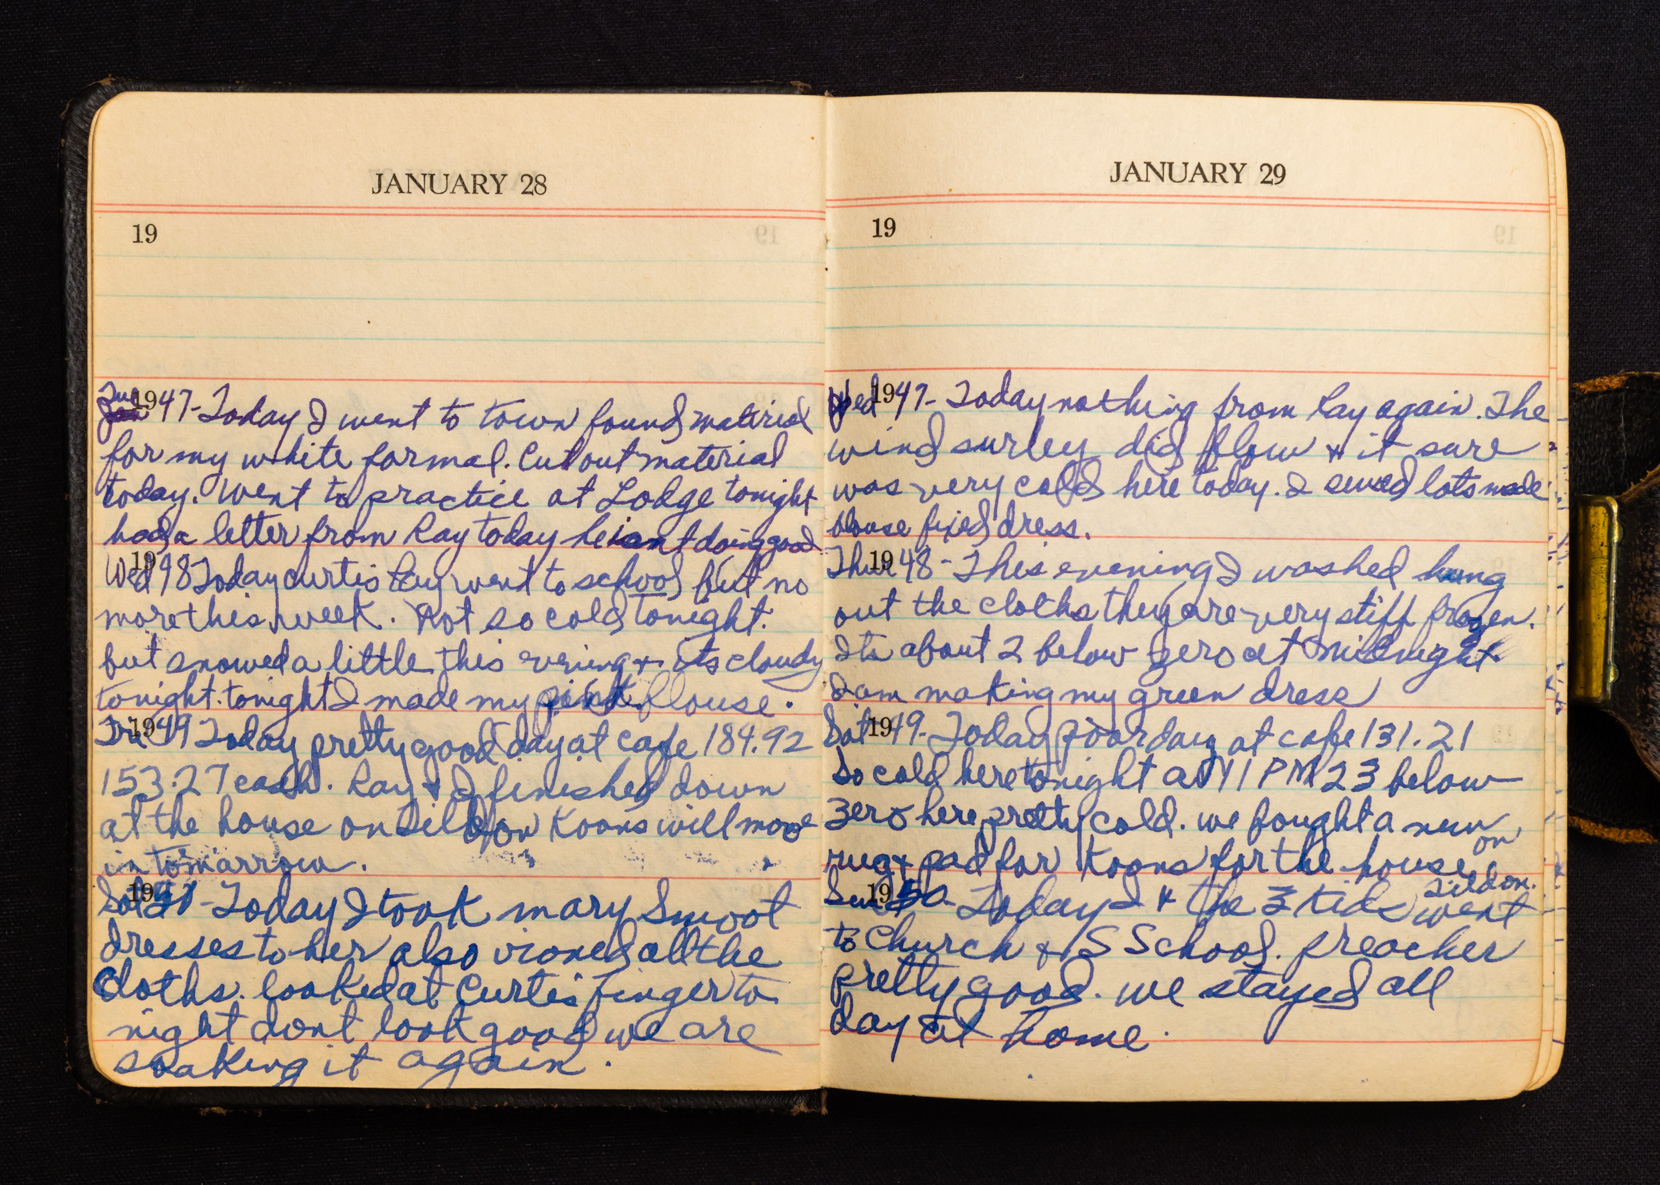 JANUARY 28
19
Tue 1947-Today I went to town found material
for my white formal. Cut out material
today. Went to practice at Lodge tonight
had a letter from Ray today he isnt doing good
Wed 1948 Today Curtis Ray went to school but no
more this week. Not so cold tonight.
but snowed a little this evening + its cloudy
tonight. tonight I made my pink blouse.
Fri 1949 Today pretty good day at cafe 184.92
153.27 cash. Ray & I finished down
at the house on Koons will move
in tomarrow.
Sat 19 - Today I took mary Smoot
dresses to her also vioned all the
Cloths. looked at Curtis finger to
night dont look good we are
soaking it again.
JANUARY 29
19
Wed 1947- Today nothing from Ray again. The
wind surley did blow & it sure
was very cold here today. I sewed lots made
blouse fixed dress.
Thur 1948- This evening I washed hung
out the cloths they are very stiff frozen.
Its about 2 below zero at midnight
I am making my green dress
Sat 1949- Today poor day at cafe 131.21
So cold here tonight at 11 PM 23 below
zero here pretty cold. we bought a new
rug & pad for Koons for the house on
Tildon.
Sun 1950- Today I & the 3 kids went
to Church & S School. preacher
pretty good. we stayed all
day at home.